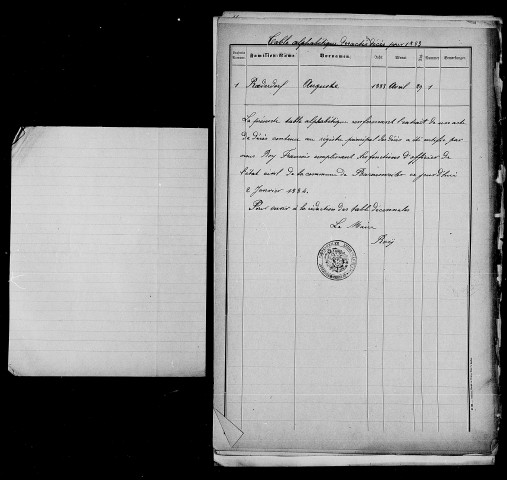 Table alphabétique des actes de décès pour 1883
Familien-Name Vornamen. Jahr Monat Tag Nummer Bemerkungen
1 Rœderdorf Auguste 1883 Avril 29 1
La présente table alphabétique renfermant l'extrait de un acte
de décès contenu au registre principal des décès a été certifiée par
nous Roy François remplissant les fonctions d'officier de
l'état civil de la commune de ce jourd'hui
2 Janvier 1884.
Pour servir à la rédaction des tabl. décennales
Le Maire
Roÿ